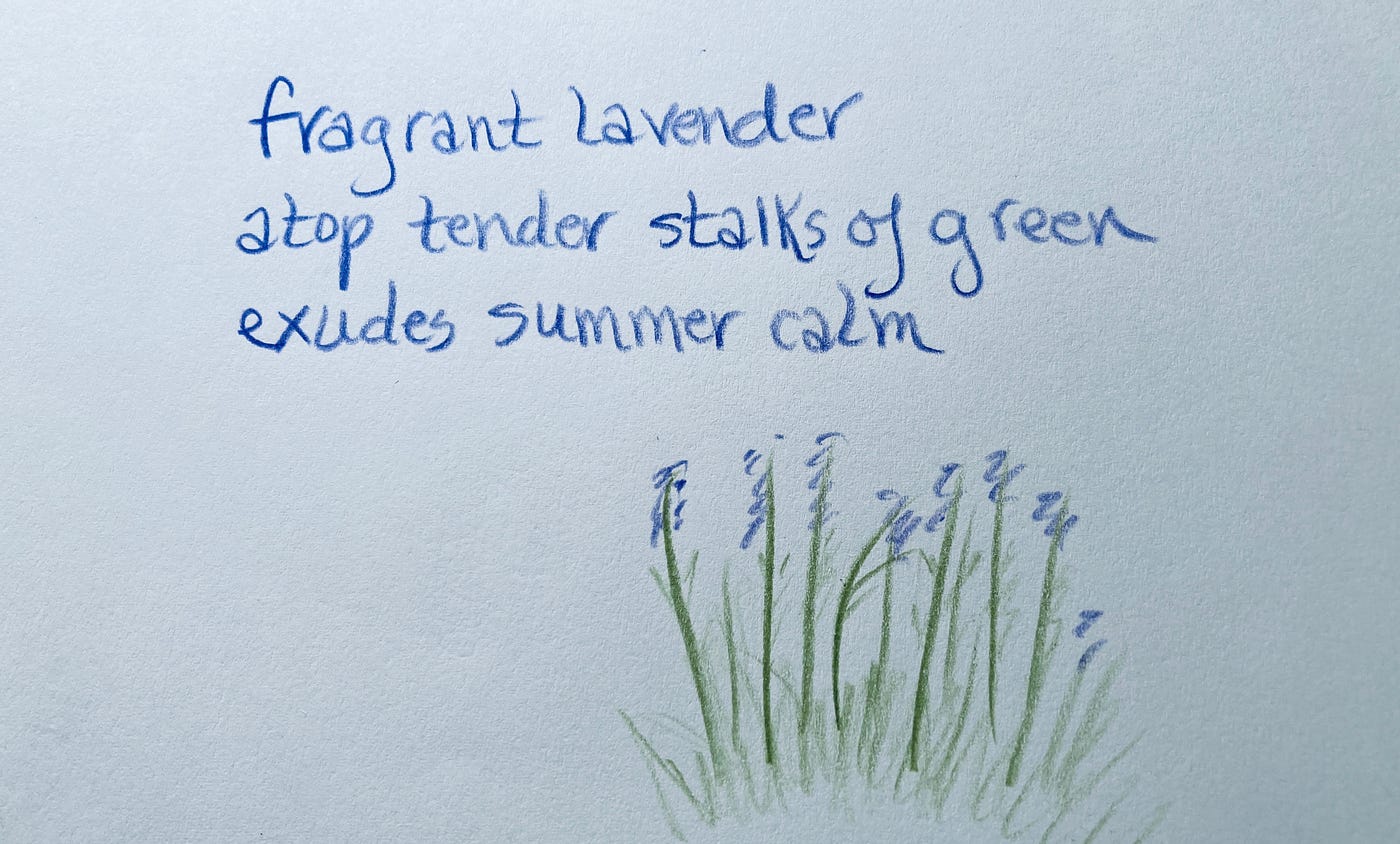 fragrant lavender
atop tender stalks of green
exudes summer calm